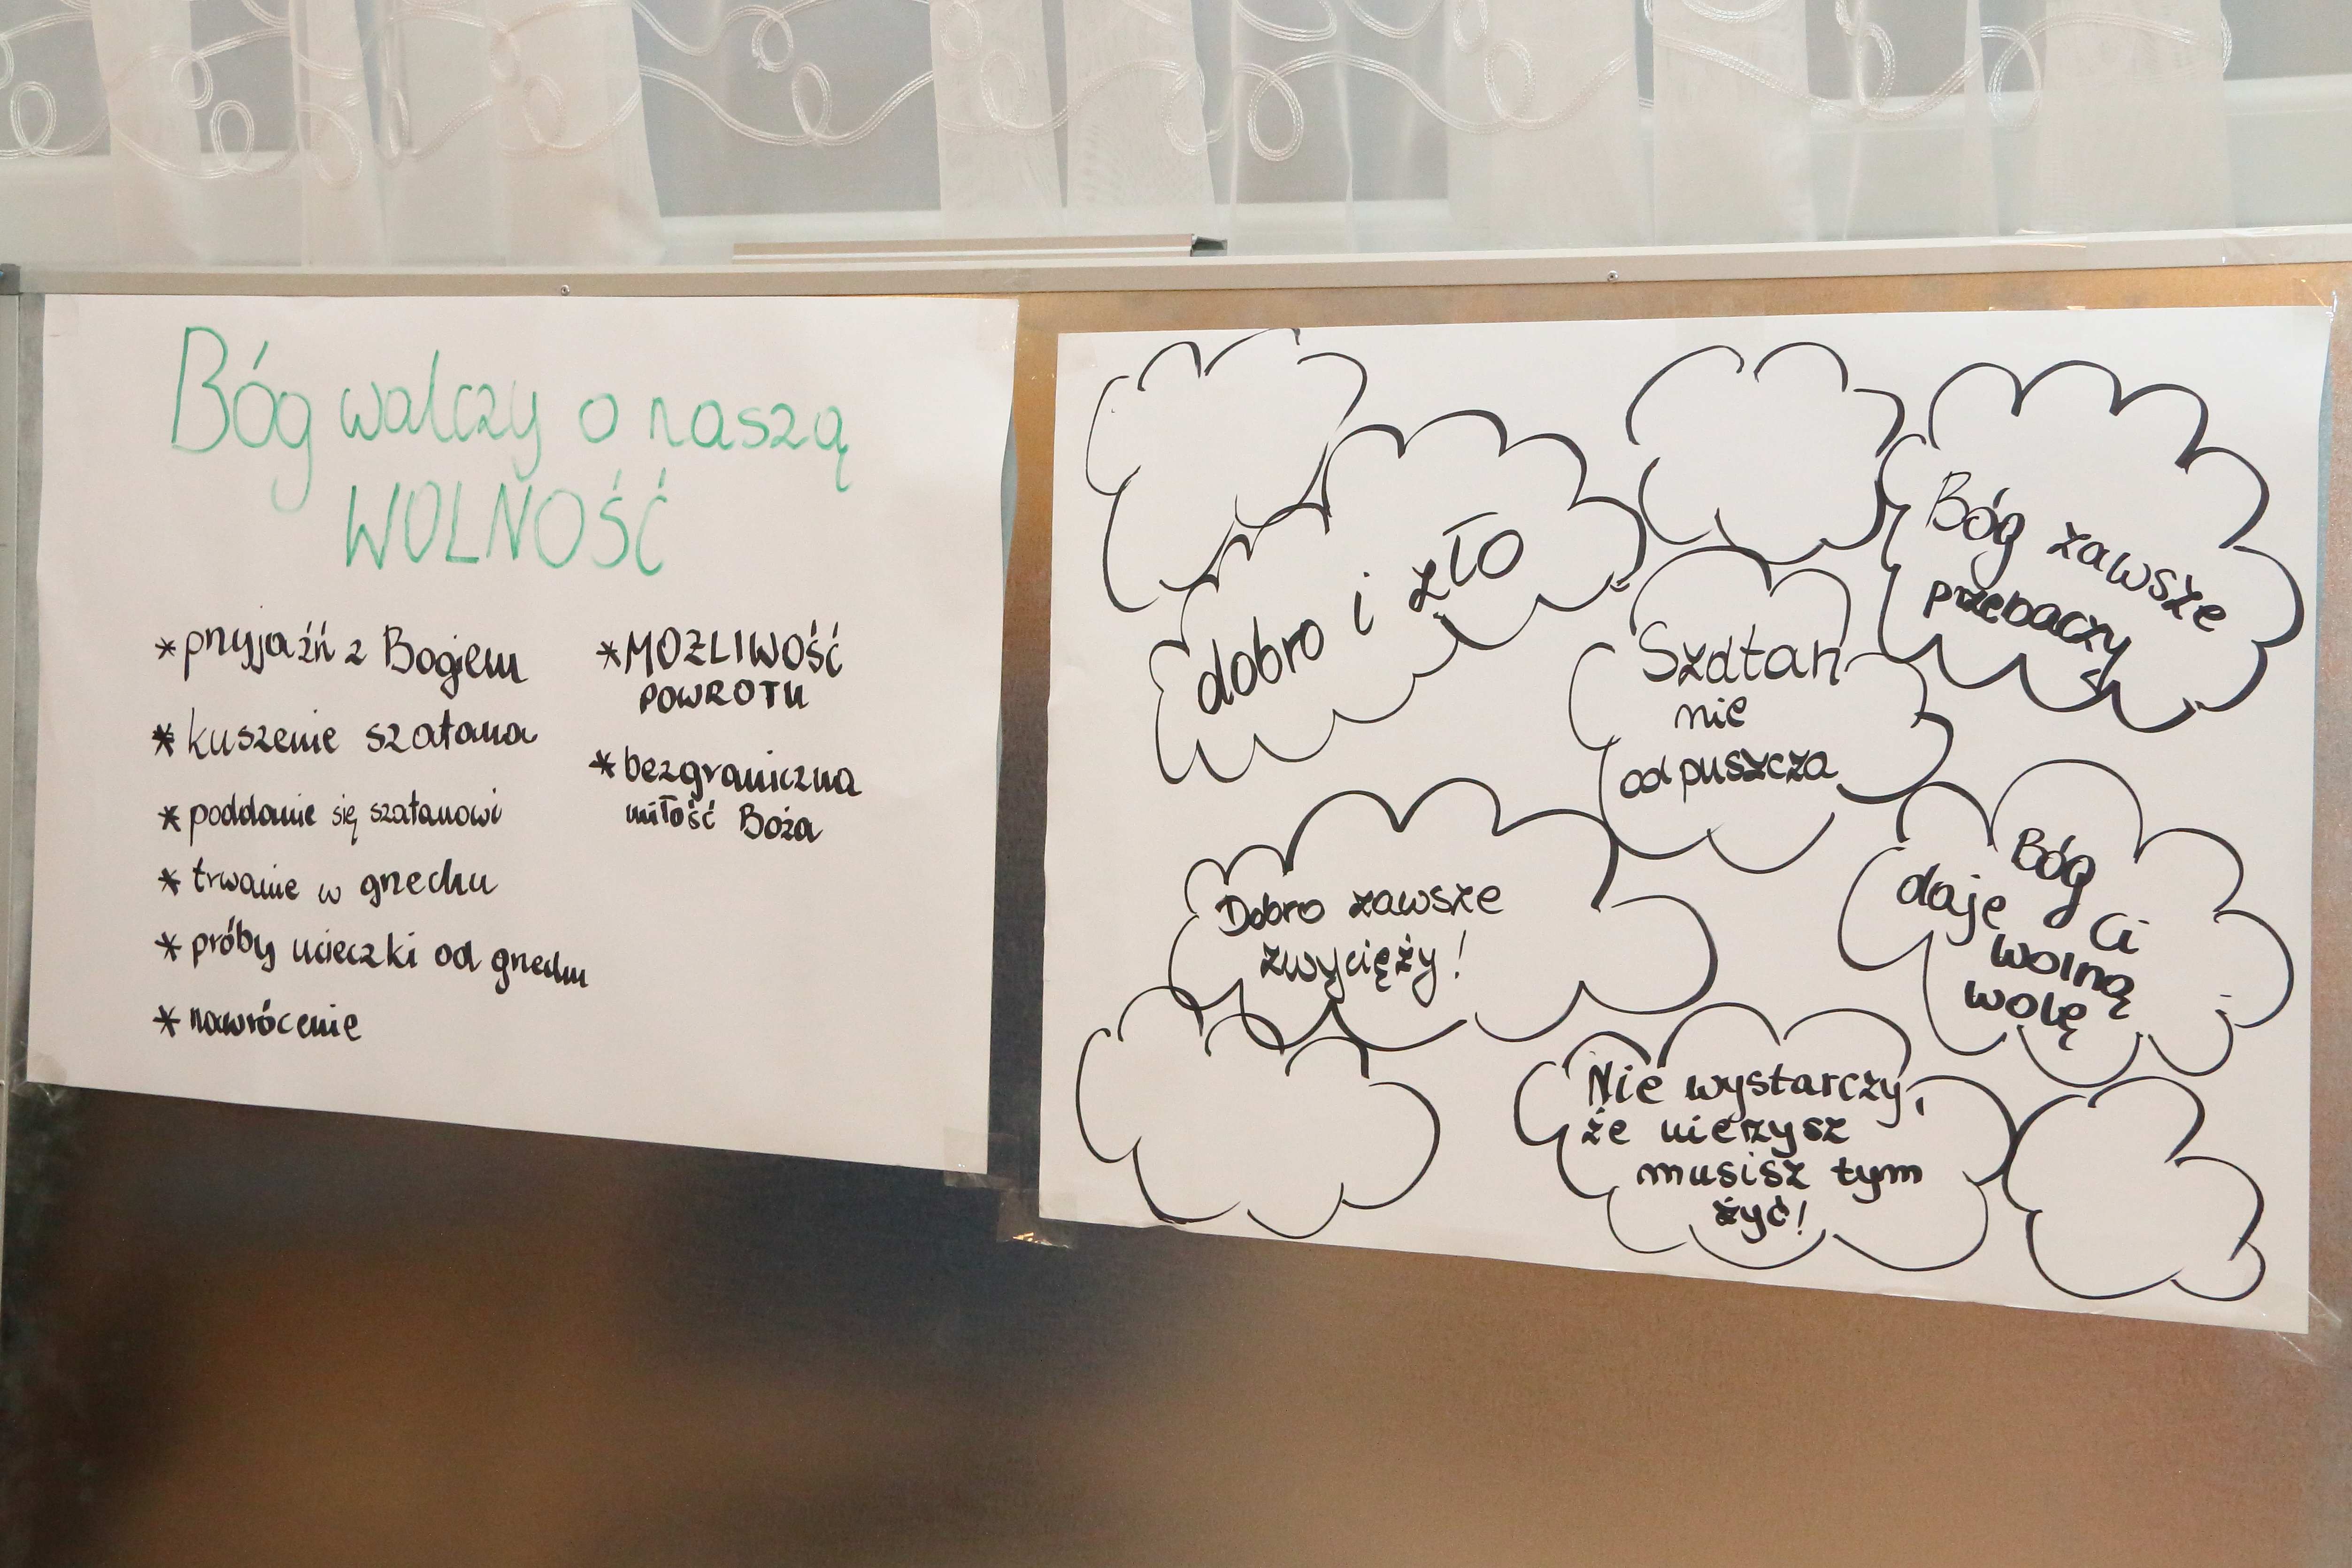 Bóg walczy o naszą
WOLNOŚĆ
*przyjaźń z Bogiem
*kuszenie szatana
*poddanie się szatanowi
*trwanie w grzechu
*próby ucieczki od grzechu
*nawrócenie
*MOŻLIWOŚĆ
POWROTU
*bezgraniczna
miłość Boża
dobro i zło
Bóg zawsze
przebaczy
Szatan
nie
odpuszcza
Dobro zawsze
zwycięży!
Bóg
daje Ci
wolną
wolę
Nie wystarczy,
że wierzysz
musisz tym
żyć!